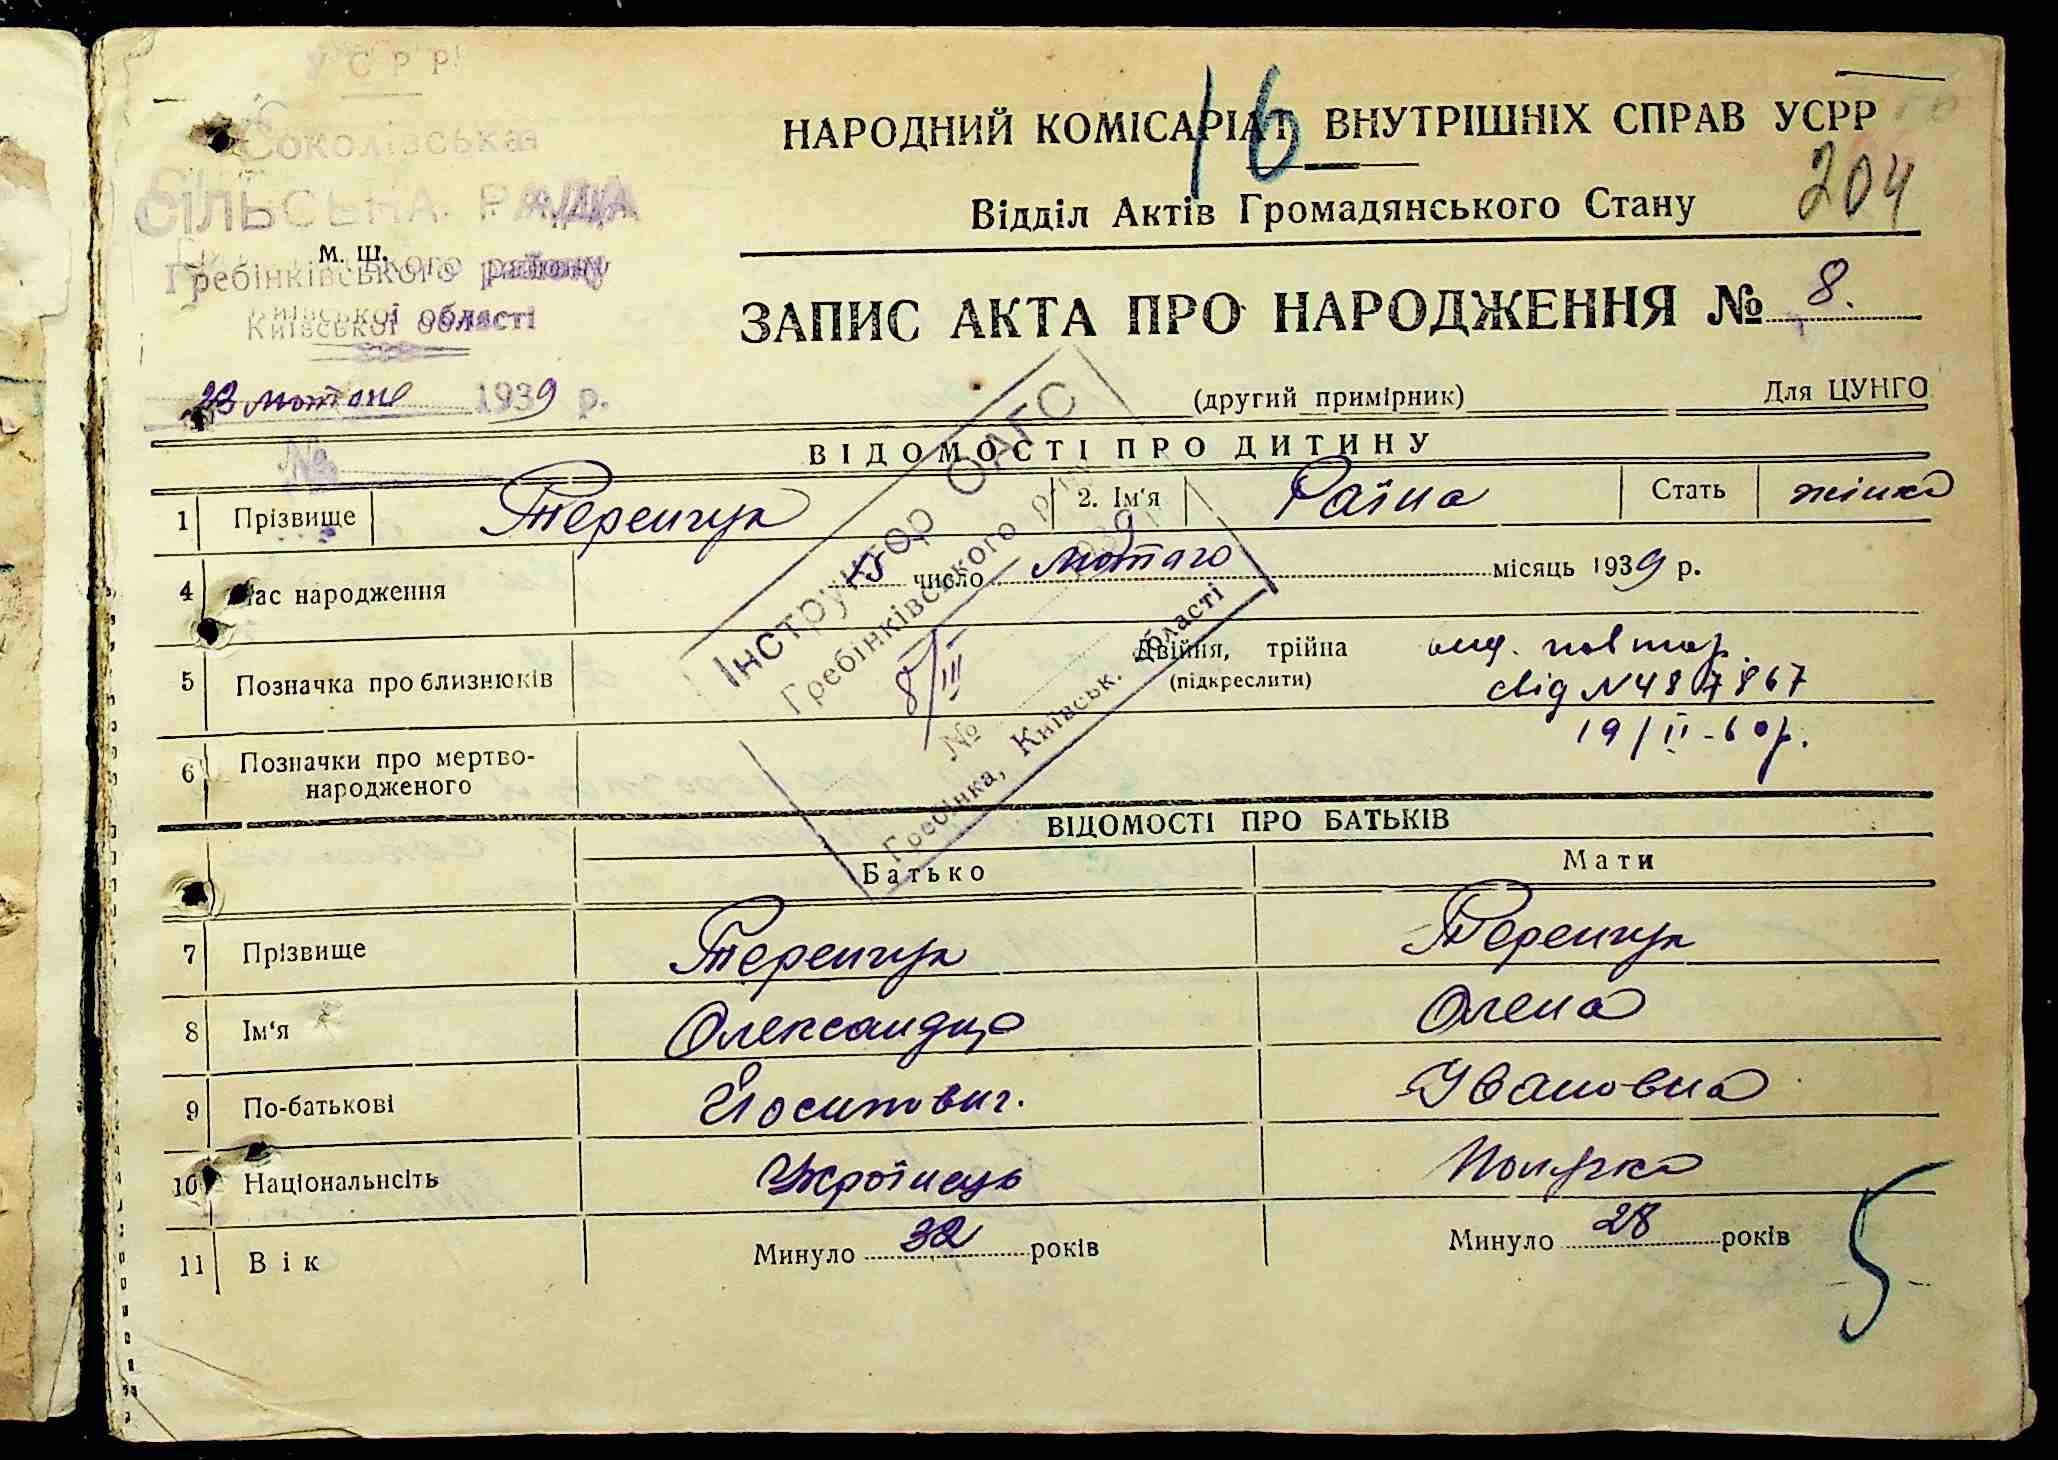 УСРР
Соколівська
СІЛЬСЬКА РАДА
м. ш.
Гребінківського району
Київської області
23 лютого 1939 р.
№
16
НАРОДНИЙ КОМІСАРІАТ ВНУТРІШНІХ СПРАВ УСРР
204
Відділ Актів Громадянського Стану
ЗАПИС АКТА ПРО НАРОДЖЕННЯ № 8.
(другий примірник) Для ЦУНГО
ВІДОМОСТІ ПРО ДИТИНУ
1 Прізвище Теренчук 2. Ім'я Раїна Стать жінка
4 Час народження 15 число лютого місяць 1939 р.
5 Позначка про близнюків Двійня, трійна
(підкреслити)
вид. повтор.
свід N 487867
19/II-60р.
6 Позначки про мертво-
народженого
Інструктор ОАГС
Гребінківського р-ну
8/III 1939 р.
№
Гребінка, Київськ. області
ВІДОМОСТІ ПРО БАТЬКІВ
Батько Мати
7 Прізвище Теренчук Теренчук
8 Ім'я Олександр Олена
9 По-батькові Йосипович. Ивановна
10 Національність Українець Полячка
11 Вік Минуло 32 років Минуло 28 років
5